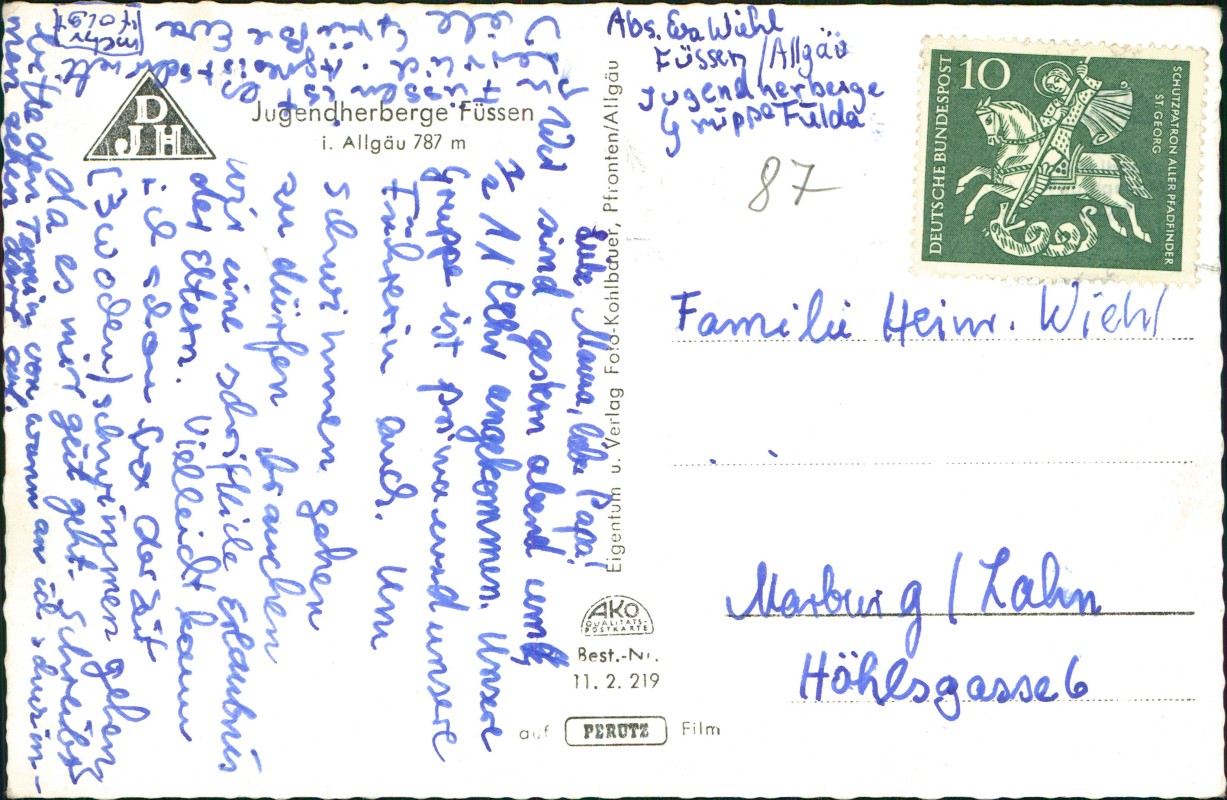 Jugendherberge Füssen
i. Allgäu 787 m
DJH
Liebe Mama, lieber Papa!
Wir sind gestern abend um
½ 11 Uhr angekommen. Unsere
Gruppe ist prima und unsere
Führerin auch. Um
schwimmen gehen
zu dürfen brauchen
wir eine schriftliche Erlaubnis
der Eltern. Vielleicht kann
ich schon vor der Zeit
(3 Wochen) schwimmen gehen
da es mir gut geht. Schreibt
bitte den Termin von wann an ich schwim-
men gehen darf auf.
Viele Grüße
Eure Eva
Füssen ist
herrlich.
mehr
folgt
Eigentum u. Verlag Foto-Kohlbauer, Pfronten/Allgäu
AKO
QUALITÄTS-
POSTKARTE
Best.-Nr.
11. 2. 219
auf PERUTZ Film
Abs. Eva Wiehl
Füssen/Allgäu
Jugendherberge
Gruppe Fulda
87
10
DEUTSCHE BUNDESPOST
SCHUTZPATRON ALLER PFADFINDER
ST. GEORG
Familie Heinr. Wiehl
Marburg / Lahn
Höhlsgasse 6